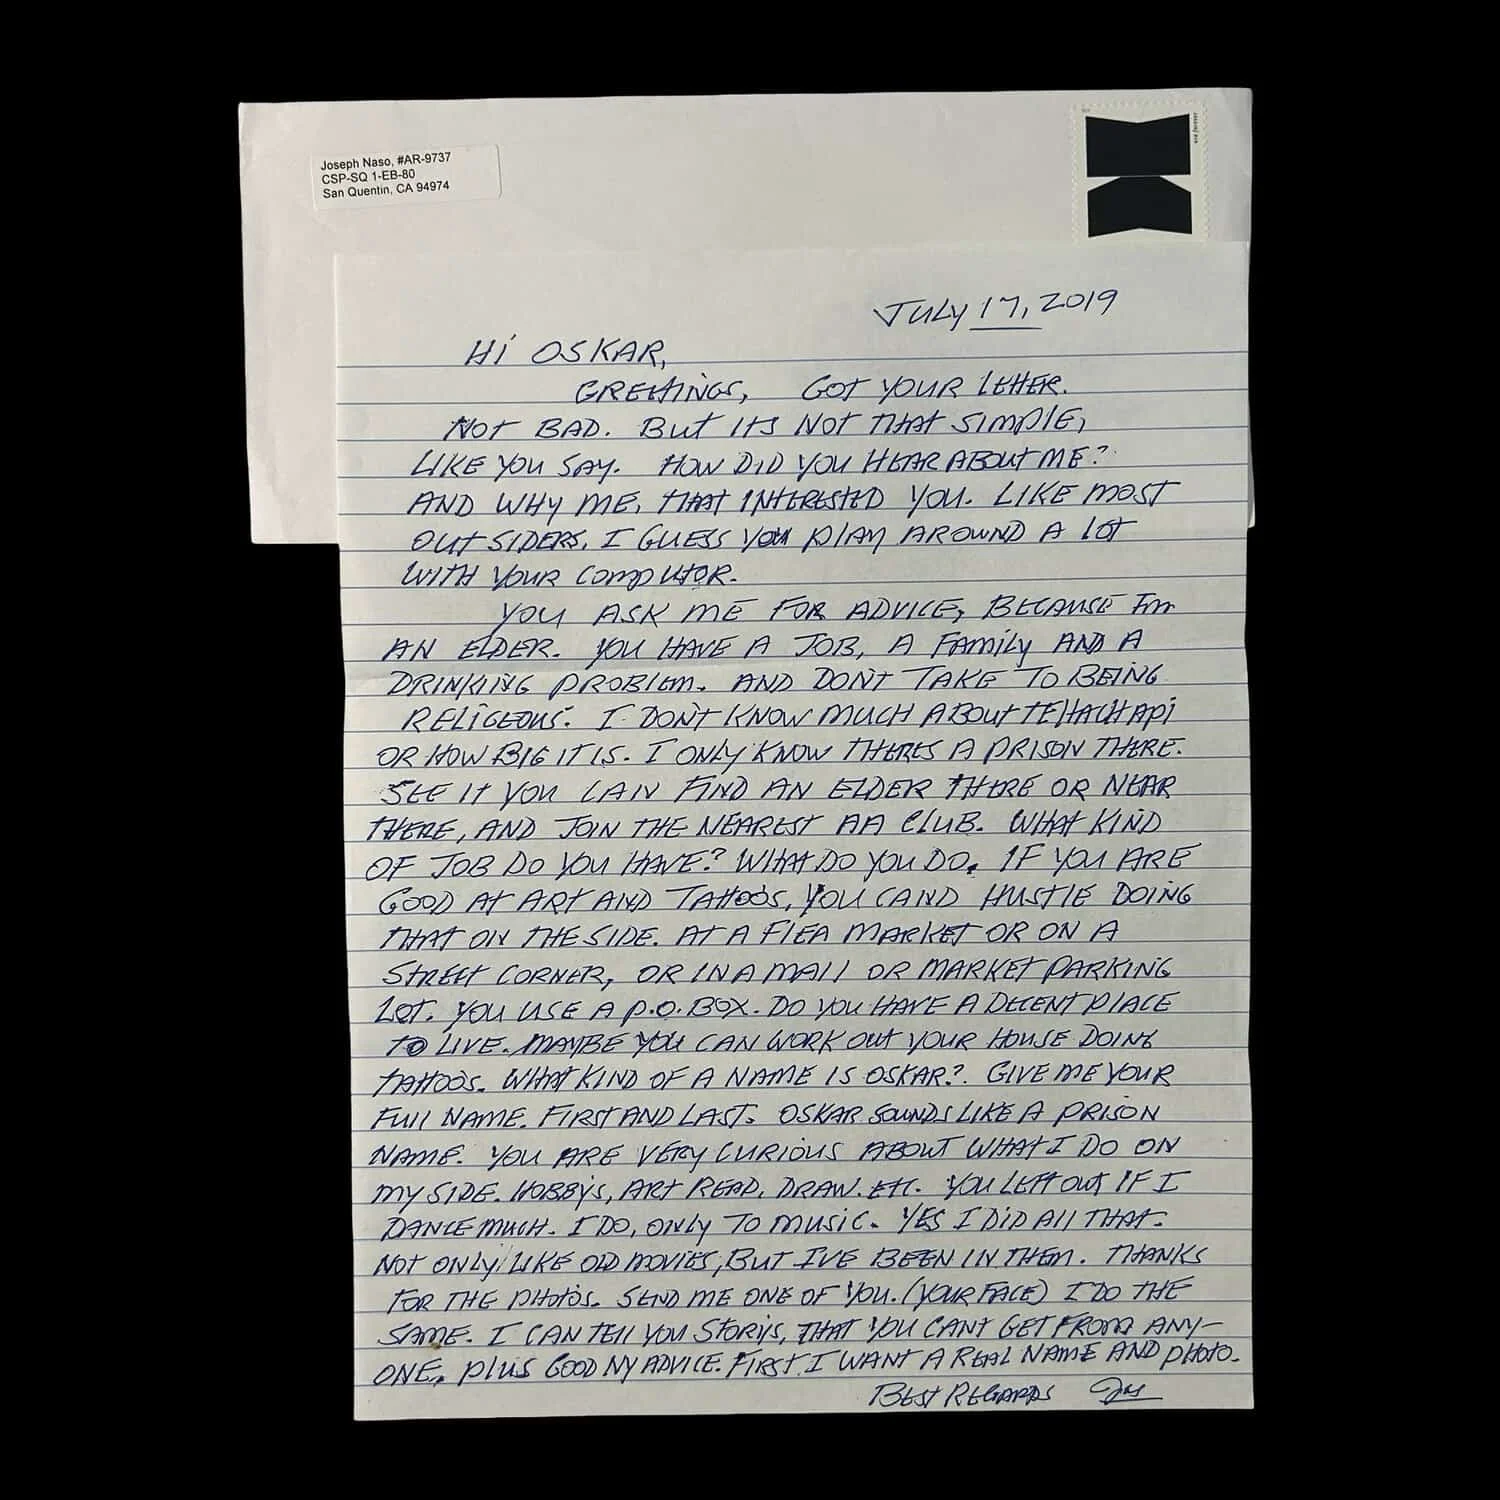 Joseph Naso, #AR-9737
CSP-SQ 1-EB-80
San Quentin, CA 94974
JULY 17, 2019
Hi OSKAR,
GREETINGS, GOT YOUR LETTER.
NOT BAD. BUT ITS NOT THAT SIMPLE,
LIKE YOU SAY. HOW DID YOU HEAR ABOUT ME?
AND WHY ME, THAT INTERESTED YOU. LIKE MOST
OUT SIDERS, I GUESS YOU PLAY AROUND A LOT
WITH YOUR COMPUTOR.
YOU ASK ME FOR ADVICE, BECAUSE I'm
AN ELDER. YOU HAVE A JOB, A FAMILY AND A
DRINKING PROBLEM. AND DON'T TAKE TO BEING
RELIGEOUS. I DON'T KNOW MUCH ABOUT TEHACHAPI
OR HOW BIG IT IS. I ONLY KNOW THERES A PRISON THERE.
SEE IF YOU CAN FIND AN ELDER THERE OR NEAR
THERE, AND JOIN THE NEAREST AA CLUB. WHAT KIND
OF JOB DO YOU HAVE? WHAT DO YOU DO. IF YOU ARE
GOOD AT ART AND TATTOOS, YOU CAND HUSTLE DOING
THAT ON THE SIDE. AT A FLEA MARKET OR ON A
STREET CORNER, OR IN A MALL OR MARKET PARKING
LOT. YOU USE A P.O. BOX. DO YOU HAVE A DECENT PLACE
TO LIVE. MAYBE YOU CAN WORK OUT YOUR HOUSE DOING
TATTOOS. WHAT KIND OF A NAME IS OSKAR?. GIVE ME YOUR
FULL NAME. FIRST AND LAST. OSKAR SOUNDS LIKE A PRISON
NAME. YOU ARE VERY CURIOUS ABOUT WHAT I DO ON
MY SIDE. HOBBYS, ART READ, DRAW. ETC. YOU LEFT OUT IF I
DANCE MUCH. I DO, ONLY TO MUSIC. YES I DID ALL THAT.
NOT ONLY LIKE OLD MOVIES, BUT I'VE BEEN IN THEM. THANKS
FOR THE PHOTOS. SEND ME ONE OF YOU. (YOUR FACE) I DO THE
SAME. I CAN TELL YOU STORYS, THAT YOU CANT GET FROM ANY-
ONE, PLUS GOOD NY ADVICE. FIRST I WANT A REAL NAME AND PHOTO.
BEST REGARDS Joe